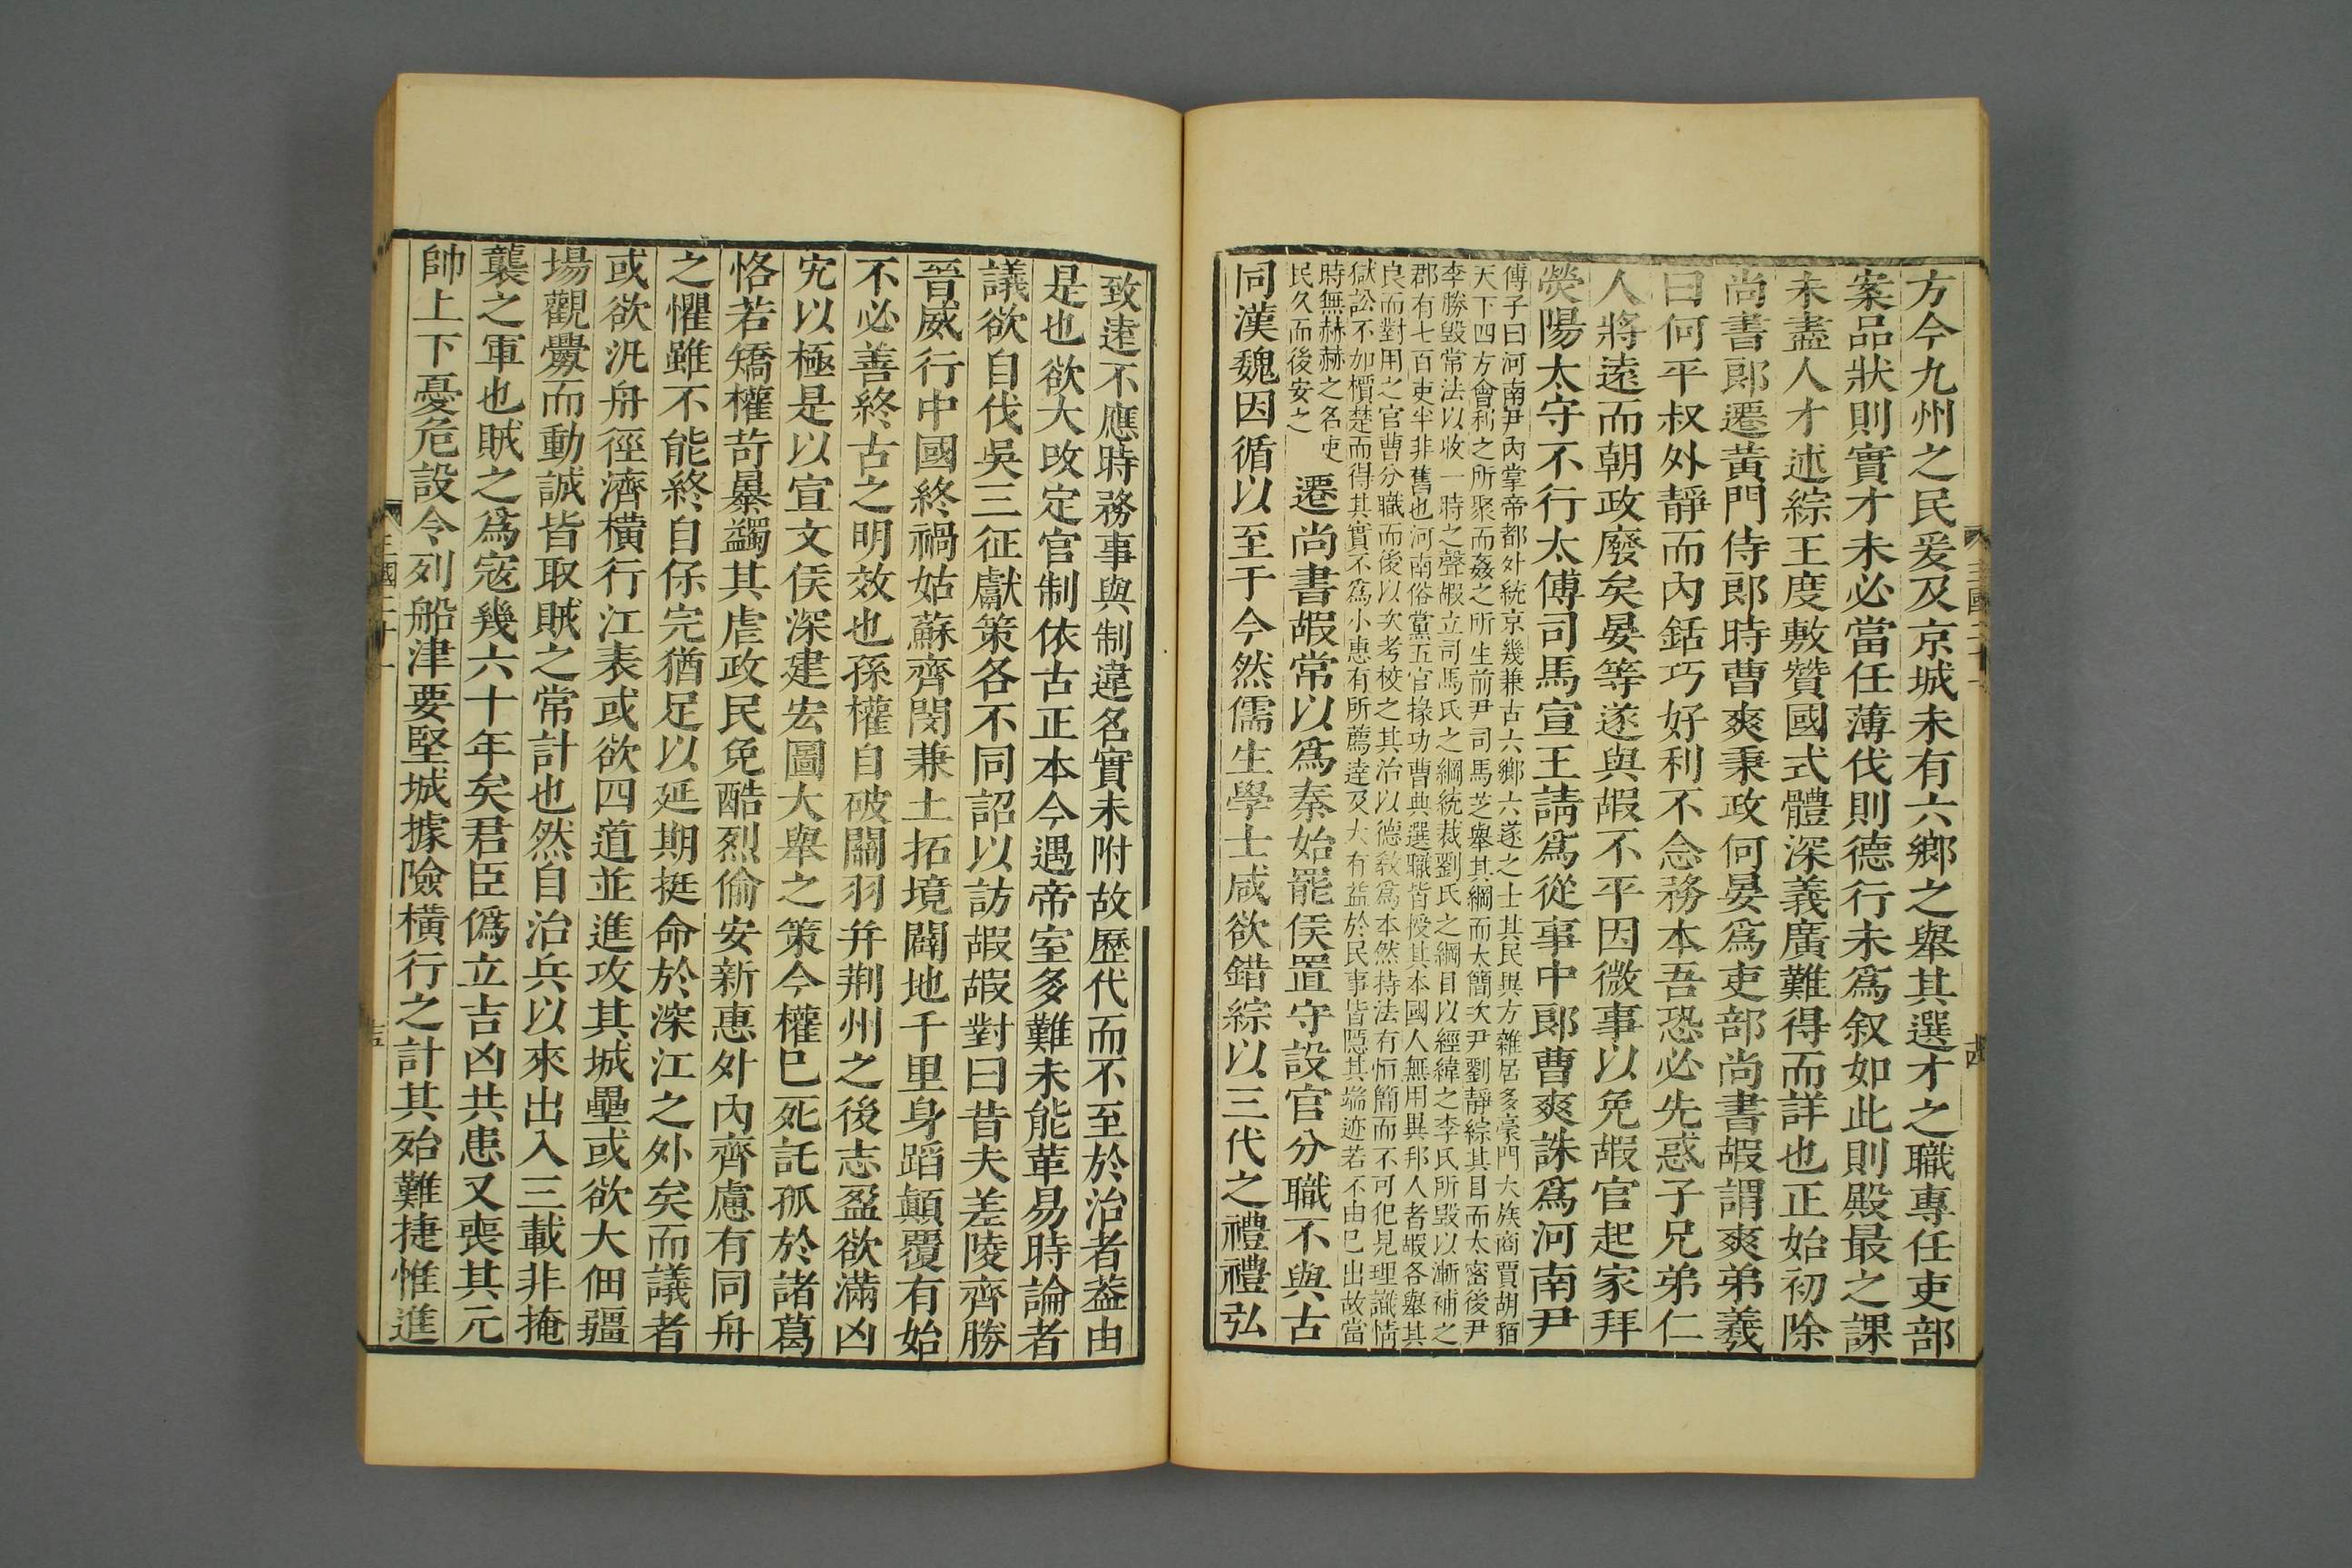 方今九州之民爰及京城未有六鄉之舉其選才之職專任吏部
案品狀則實才未必當任薄伐則德行未爲叙如此則殿最之課
未盡人才述綜王度敷贊國式體深義廣難得而詳也正始初除
尚書郎遷黃門侍郎時曹爽秉政何晏爲吏部尚書嘏謂爽弟羲
曰何平叔外靜而內銛巧好利不念務本吾恐必先惑子兄弟仁
人將遠而朝政廢矣晏等遂與嘏不平因微事以免嘏官起家拜
熒陽太守不行太傅司馬宣王請爲從事中郎曹爽誅爲河南尹
傅子曰河南尹內掌帝都外統京畿兼古六鄉六遂之士其民異方雜居多豪門大族商賈胡貊
天下四方會利之所聚而姦之所生前尹司馬芝舉其綱而太簡次尹劉靜綜其目而太密後尹
李勝毀常法以收一時之聲嘏立司馬氏之綱統裁劉氏之綱目以經緯之李氏所毀以漸補之
郡有七百吏半非舊也河南俗黨五官掾功曹典選職皆授其本國人無用異邦人者嘏各舉其
良而對用之官曹分職而後以次考校之其治以德教爲本然持法有恒簡而不可犯見理識情
獄訟不加檟楚而得其實不爲小惠有所薦達及大有益於民事皆隱其端迹若不由己出故當
時無赫赫之名吏
民久而後安之
遷尚書嘏常以爲秦始罷侯置守設官分職不與古
同漢魏因循以至于今然儒生學士咸欲錯綜以三代之禮禮弘
三國二十一
十四
致遠不應時務事與制違名實未附故歷代而不至於治者葢由
是也欲大改定官制依古正本今遇帝室多難未能革易時論者
議欲自伐吳三征獻策各不同詔以訪嘏嘏對曰昔夫差陵齊勝
晉威行中國終禍姑蘇齊閔兼土拓境闢地千里身蹈顛覆有始
不必善終古之明效也孫權自破關羽并荆州之後志盈欲滿凶
宄以極是以宣文侯深建宏圖大舉之策今權已死託孤於諸葛
恪若矯權苛暴蠲其虐政民免酷烈偷安新惠外內齊慮有同舟
之懼雖不能終自保完猶足以延期挺命於深江之外矣而議者
或欲汎舟徑濟橫行江表或欲四道並進攻其城壘或欲大佃疆
場觀釁而動誠皆取賊之常計也然自治兵以來出入三載非掩
襲之軍也賊之爲寇幾六十年矣君臣僞立吉凶共患又喪其元
帥上下憂危設令列船津要堅城據險橫行之計其殆難捷惟進
三國二十一
十五